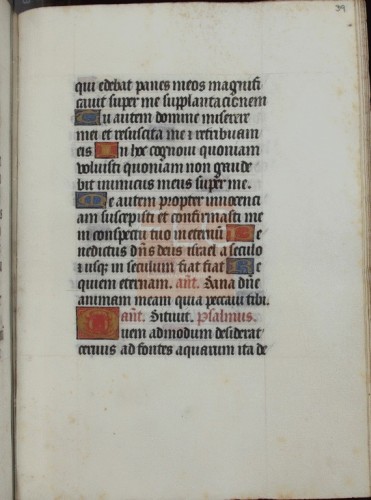 39
qui edebat panes meos magnifi
cavit super me supplantacionem
Tu autem domine miserere
mei et resuscita me ⁊ retribuam
eis In hoc cognovi quoniam
voluisti quoniam non gaude
bit inimicus meus super me.
Me autem propter innocenci
am suscepisti et confirmasti me
in conspectu tuo in eternū Be
nedictus dn̄s deus israel a seculo
⁊ usq; in seculum fiat fiat Re
quiem eternam. an̄t. Sana dn̄e
animam meam quia peccavi tibi.
an̄t. Sitivit. Psalmus.
Quem admodum desiderat
cervus ad fontes aquarum ita de